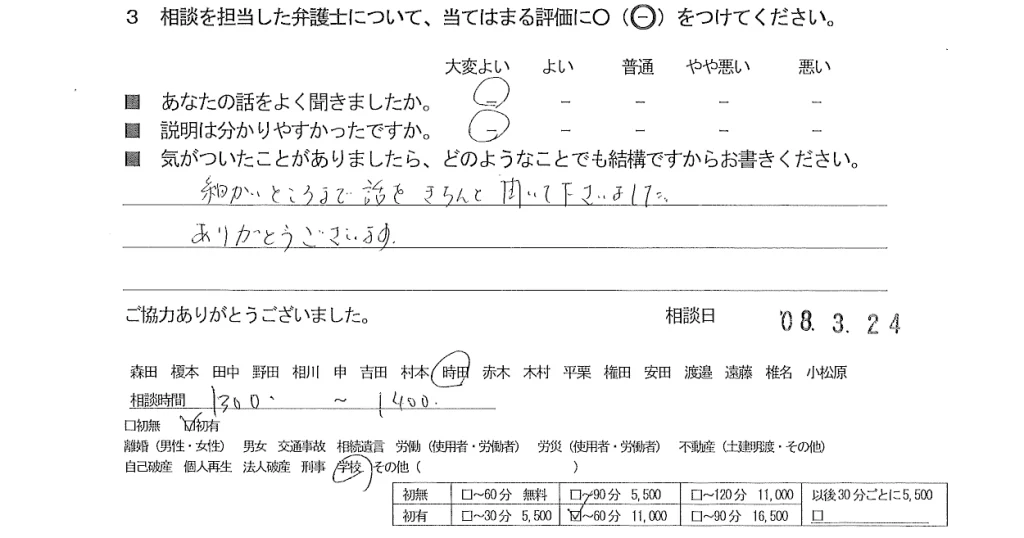 3 相談を担当した弁護士について、当てはまる評価に○(㊀)をつけてください。
大変よい よい 普通 やや悪い 悪い
■ あなたの話をよく聞きましたか。 − − − − −
■ 説明は分かりやすかったですか。 − − − − −
■ 気がついたことがありましたら、どのようなことでも結構ですからお書きください。
細かいところまで話をきちんと聞いて下さいました。
ありがとうございます。
ご協力ありがとうございました。 相談日 '08. 3. 24
森田 榎本 田中 野田 相川 申 吉田 村本 時田 赤木 木村 平栗 権田 安田 渡邉 遠藤 椎名 小松原
相談時間 1300. ～ 1400.
□初無 ☑初有
離婚(男性・女性) 男女 交通事故 相続遺言 労働(使用者・労働者) 労災(使用者・労働者) 不動産(土建明渡・その他)
自己破産 個人再生 法人破産 刑事 学校 その他( )
初無 □～60分 無料 □～90分 5,500 □～120分 11,000 以後30分ごとに5,500
初有 □～30分 5,500 ☑～60分 11,000 □～90分 16,500 □